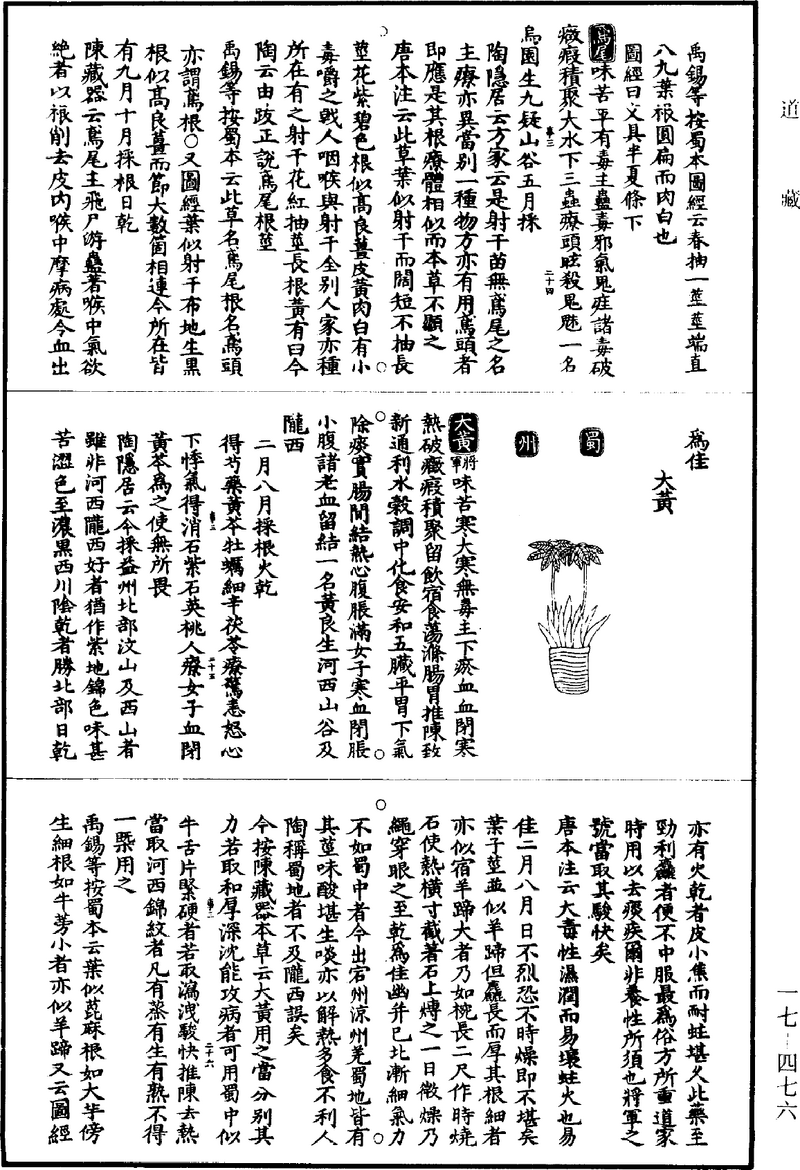 道藏
禹錫等按蜀本圖經云春抽一莖莖端直
八九葉根圓扁而肉白也
圖經曰文具半夏條下
鳶尾味苦平有毒主蠱毒邪氣鬼疰諸毒破
癥瘕積聚大水下三蟲療頭眩殺鬼魅一名
烏園生九疑山谷五月採
陶隱居云方家云是射干苗無鳶尾之名
主療亦異當別一種物方亦有用鳶頭者
即應是其根療體相似而本草不顯之
唐本注云此草葉似射干而闊短不抽長
莖花紫碧色根似高良薑皮黃肉白有小
毒嚼之戟人咽喉與射干全別人家亦種
所在有之射干花紅抽莖長根黃有臼今
陶云由跋正說鳶尾根莖
禹錫等按蜀本云此草名鳶尾根名鳶頭
亦謂鳶根○又圖經葉似射干布地生黑
根似高良薑而節大數箇相連今所在皆
有九月十月採根日乾
陳藏器云鳶尾主飛尸游蠱著喉中氣欲
絕者以根削去皮內喉中摩病處令血出
為佳
大黃
蜀
州
大黃將軍味苦寒大寒無毒主下瘀血血閉寒
熱破癥瘕積聚留飲宿食蕩滌腸胃推陳致
新通利水穀調中化食安和五臟平胃下氣
除痰實腸間結熱心腹脹滿女子寒血閉脹
小腹諸老血留結一名黃良生河西山谷及
隴西
二月八月採根火乾
得芍藥黃芩牡蠣細辛茯苓療驚恚怒心
下悸氣得消石紫石英桃人療女子血閉
黃芩為之使無所畏
陶隱居云今採益州北部汶山及西山者
雖非河西隴西好者猶作紫地錦色味甚
苦澀色至濃黑西川陰乾者勝北部日乾
亦有火乾者皮小焦而耐蛀堪久此藥至
勁利麤者便不中服最為俗方所重道家
時用以去痰疾爾非養性所須也將軍之
號當取其駿快矣
唐本注云大毒性濕潤而易壞蛀火也易
佳二月八月日不烈恐不時燥即不堪矣
葉子莖並似羊蹄但麤長而厚其根細者
亦似宿羊蹄大者乃如椀長二尺作時燒
石使熱橫寸截著石上煿之一日微燥乃
繩穿眼之至乾為佳幽并已北漸細氣力
不如蜀中者今出宕州涼州羌蜀地皆有
其莖味酸堪生啖亦以解熱多食不利人
陶稱蜀地者不及隴西誤矣
今按陳藏器本草云大黃用之當分別其
力若取和厚深沈能攻病者可用蜀中似
牛舌片緊硬者若取瀉洩駿快推陳去熱
當取河西錦紋者凡有蒸有生有熟不得
一槩用之
禹錫等按蜀本云葉似萞麻根如大芋傍
生細根如牛蒡小者亦似羊蹄又云圖經
一七—四七六